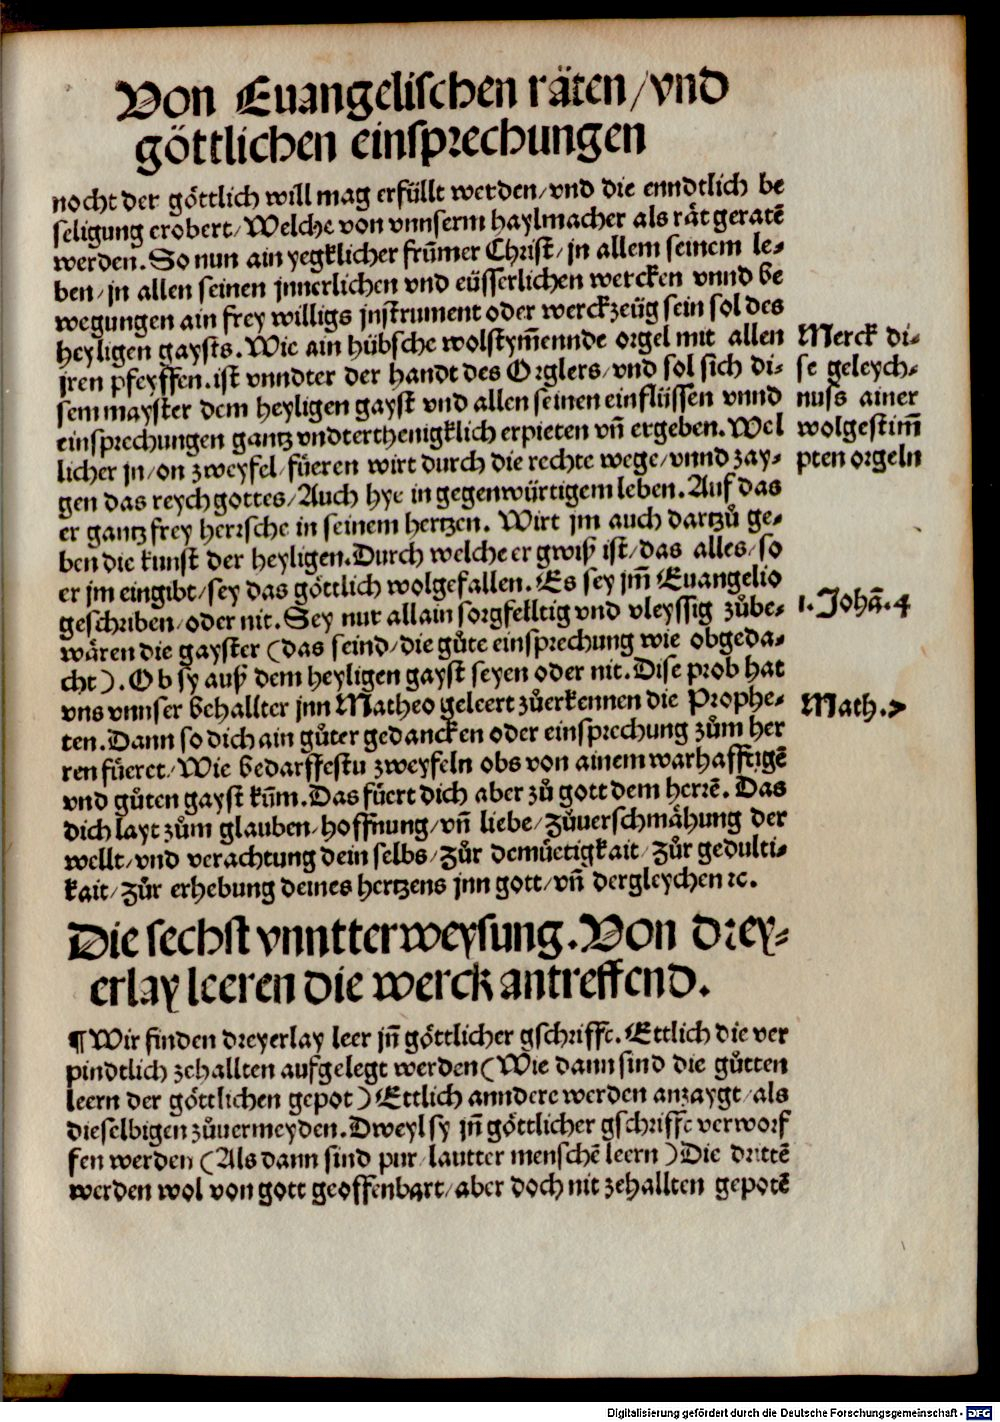 Von Euangelischen räten/vnd
göttlichen einsprechungen
nocht der göttlich will mag erfüllt werden/vnd die enndtlich be
seligung erobert/Welche von vnnserm haylmacher als rät geratē
werden. So nun ain yegklicher frūmer Christ/jn allem seinem le-
ben/jn allen seinen jnnerlichen vnd eüsserlichen wercken vnnd be
wegungen ain frey willigs jnstrument oder werckzeüg sein sol des
heyligen gaysts. Wie ain hübsche wolstym̄ennde orgel mit allen
jren pfeyffen. ist vnndter der handt des Orglers/vnd sol sich di-
sem mayster dem heyligen gayst vnd allen seinen einflüssen vnnd
einsprechungen gantz vndterthenigklich erpieten vn̄ ergeben. Wel
licher jn/on zweyfel/füeren wirt durch die rechte wege/vnnd zay-
gen das reych gottes/Auch hye in gegenwürtigem leben. Auf das
er gantz frey herrsche in seinem hertzen. Wirt jm auch dartzů ge-
ben die kunst der heyligen. Durch welche er gwiß ist/das alles/so
er jm eingibt/sey das göttlich wolgefallen. Es sey jm̄ Euangelio
geschriben/oder nit. Sey nur allain sorgfelltig vnd vleyssig zůbe-
wären die gayster (das seind/die gůte einsprechung wie obgeda-
cht). Ob sy auß dem heyligen gayst seyen oder nit. Dise prob hat
vns vnnser behallter jnn Matheo geleert zůerkennen die Prophe-
ten. Dann so dich ain gůter gedancken oder einsprechung zům her
ren füeret/Wie bedarffestu zweyfeln obs von ainem warhafftigē
vnd gůten gayst kūm. Das füert dich aber zů gott dem herrē. Das
dich layt zům glauben/hoffnung/vn̄ liebe/zůuerschmähung der
wellt/vnd verachtung dein selbs/zůr demüetigkait/zůr gedulti-
kait/zůr erhebung deines hertzens jnn gott/vn̄ dergleychen ꝛc.
Merck di-
se geleych-
nuss ainer
wolgestim̄
pten orgeln
1. Johā. 4
Math. 7
Die sechst vnntterweysung. Von drey-
erlay leeren die werck antreffend.
¶ Wir finden dreyerlay leer jn̄ göttlicher gschrifft. Ettlich die ver
pindtlich zehallten aufgelegt werden (Wie dann sind die gůtten
leern der göttlichen gepot) Ettlich anndere werden anzaygt/als
dieselbigen zůuermeyden. Dweyl sy jn̄ göttlicher gschrifft verworf
fen werden (Als dann sind pur/lautter menschē leern) Die drittē
werden wol von gott geoffenbart/aber doch nit zehallten gepotē
Digitalisierung gefördert durch die Deutsche Forschungsgemeinschaft - DFG